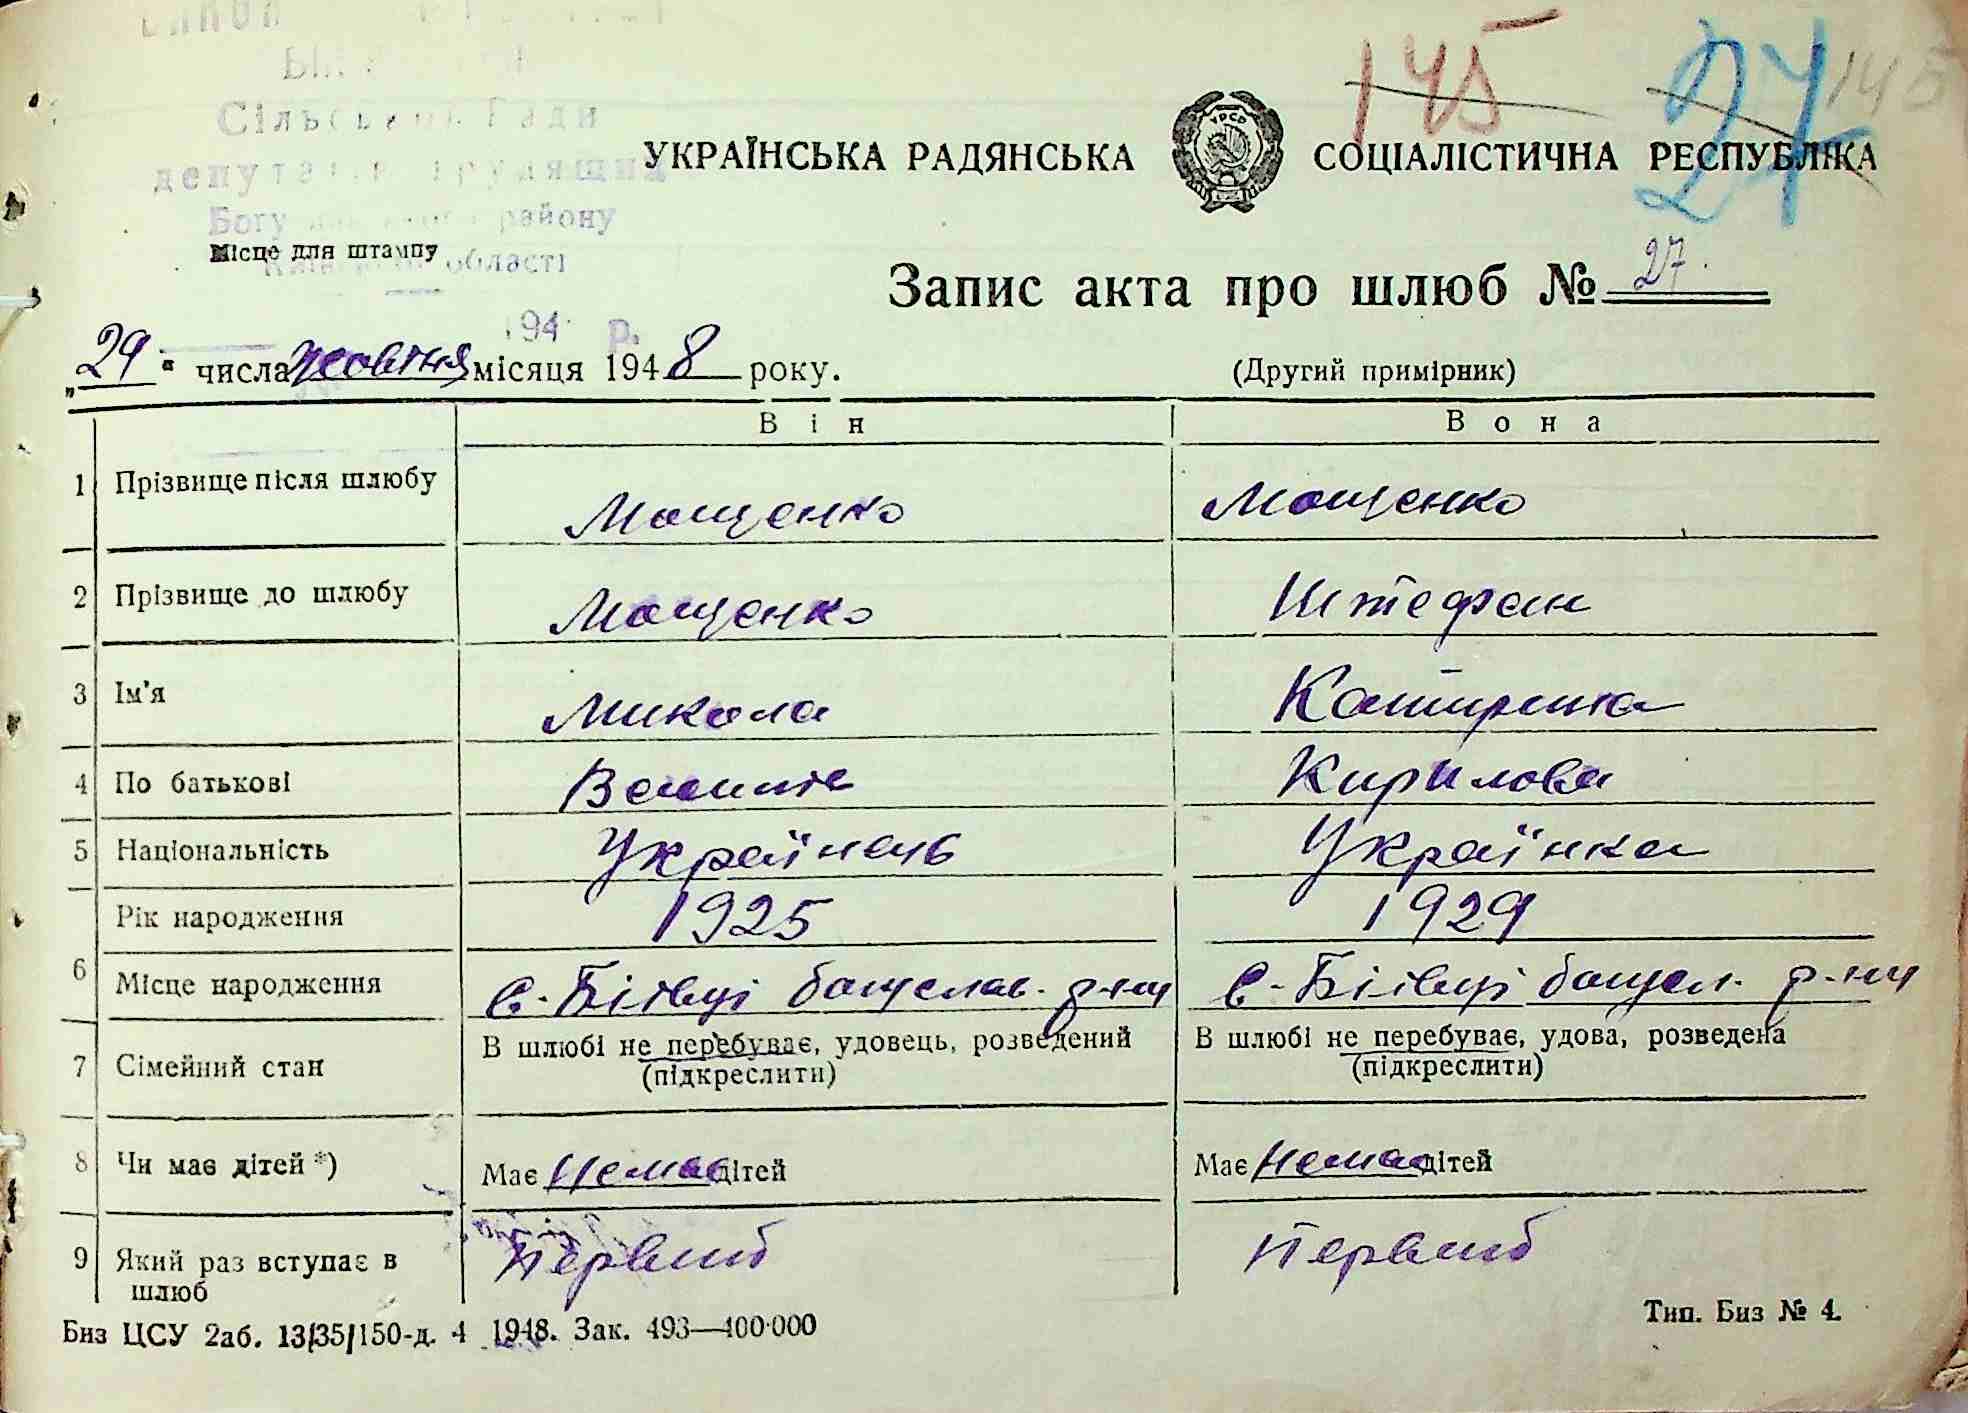 145 27 145
Сільської Ради
депутатів трудящих
району
області
УКРАЇНСЬКА РАДЯНСЬКА СОЦІАЛІСТИЧНА РЕСПУБЛІКА
УРСР
Місце для штампу
Запис акта про шлюб № 27.
194 р.
„29" числа жовтня місяця 1948 року.
(Другий примірник)
Він Вона
1 Прізвище після шлюбу Мащенко Мащенко
2 Прізвище до шлюбу Мащенко Штефан
3 Ім'я Микола Катирина
4 По батькові Кирилова
5 Національність Українець Українка
Рік народження 1925 1929
6 Місце народження с. Біївці богуслав. р-ну с. Біївці богусл. р-ну
7 Сімейний стан В шлюбі не перебуває, удовець, розведений В шлюбі не перебуває, удова, розведена
(підкреслити) (підкреслити)
8 Чи має дітей *) Має немає дітей Має немає дітей
9 Який раз вступає в Первий Первий
шлюб
Биз ЦСУ 2аб. 13/35/150-д. 4 1948. Зак. 493—400·000
Тип. Биз № 4.